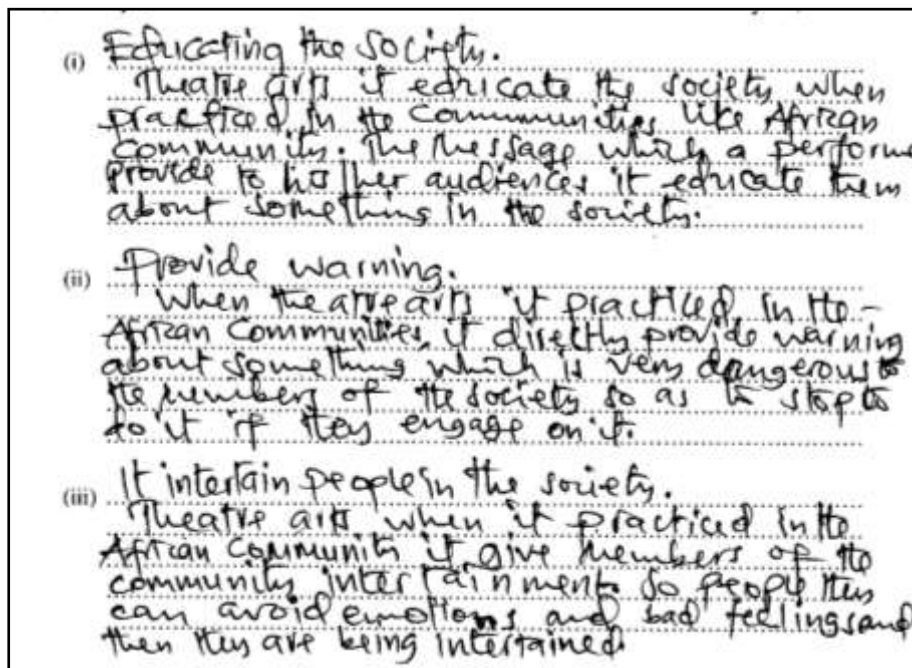 (i) Educating the society.
Theatre arts it educate the society when
practiced in the communities like African
community. The message which a performe
provide to his/her audiences it educate them
about something in the society.
(ii) Provide warning.
When theatre arts it practiced in the
African Communities, it directly provide warning
about something which is very dangerous to
the members of the society so as to stop to
do it if they engage on it.
(iii) It intertain people in the society.
Theatre arts when it practiced in the
African Community it give members of the
community intertainment. So people they
can avoid emotions and bad feelings and
then they are being intertained.